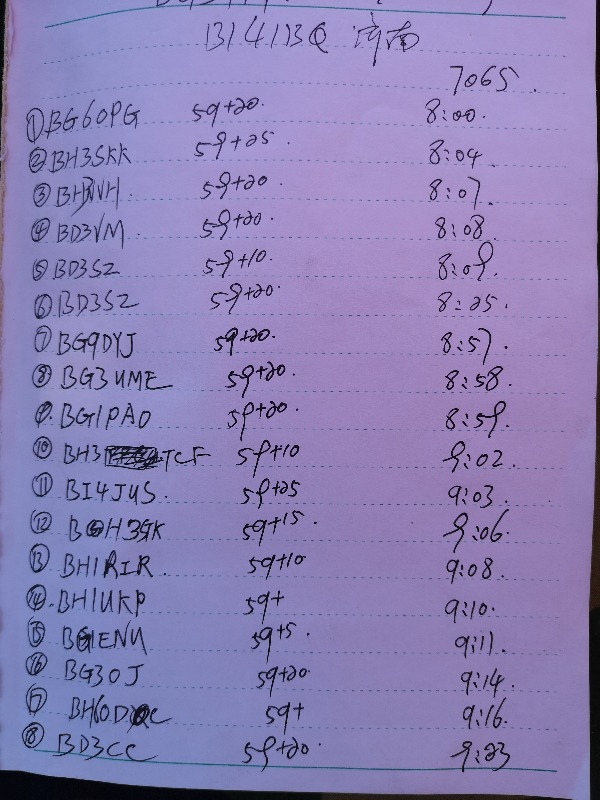 BI4IBQ 济南
7065.
① BG6OPG 59+20. 8:00.
② BH3SKK 59+25. 8:04.
③ 59+20. 8:07.
④ BD3VM 59+20. 8:08.
⑤ BD3SZ 59+10. 8:09.
⑥ BD3SZ 59+20. 8:25.
⑦ BG9DYJ 59+20. 8:57.
⑧ BG3UME 59+20. 8:58.
⑨ BG1PAO 59+20. 8:59.
⑩ BH3TCF 59+10 9:02.
⑪ BI4JUS. 59+25 9:03.
⑫ 59+15. 9:06.
⑬ BH1RIR. 59+10 9:08.
⑭ BH1UKP 59+ 9:10.
⑮ 59+5. 9:11.
⑯ BG3OJ 59+20 9:14.
⑰ 59+ 9:16.
⑱ BD3CC 59+20. 9:23